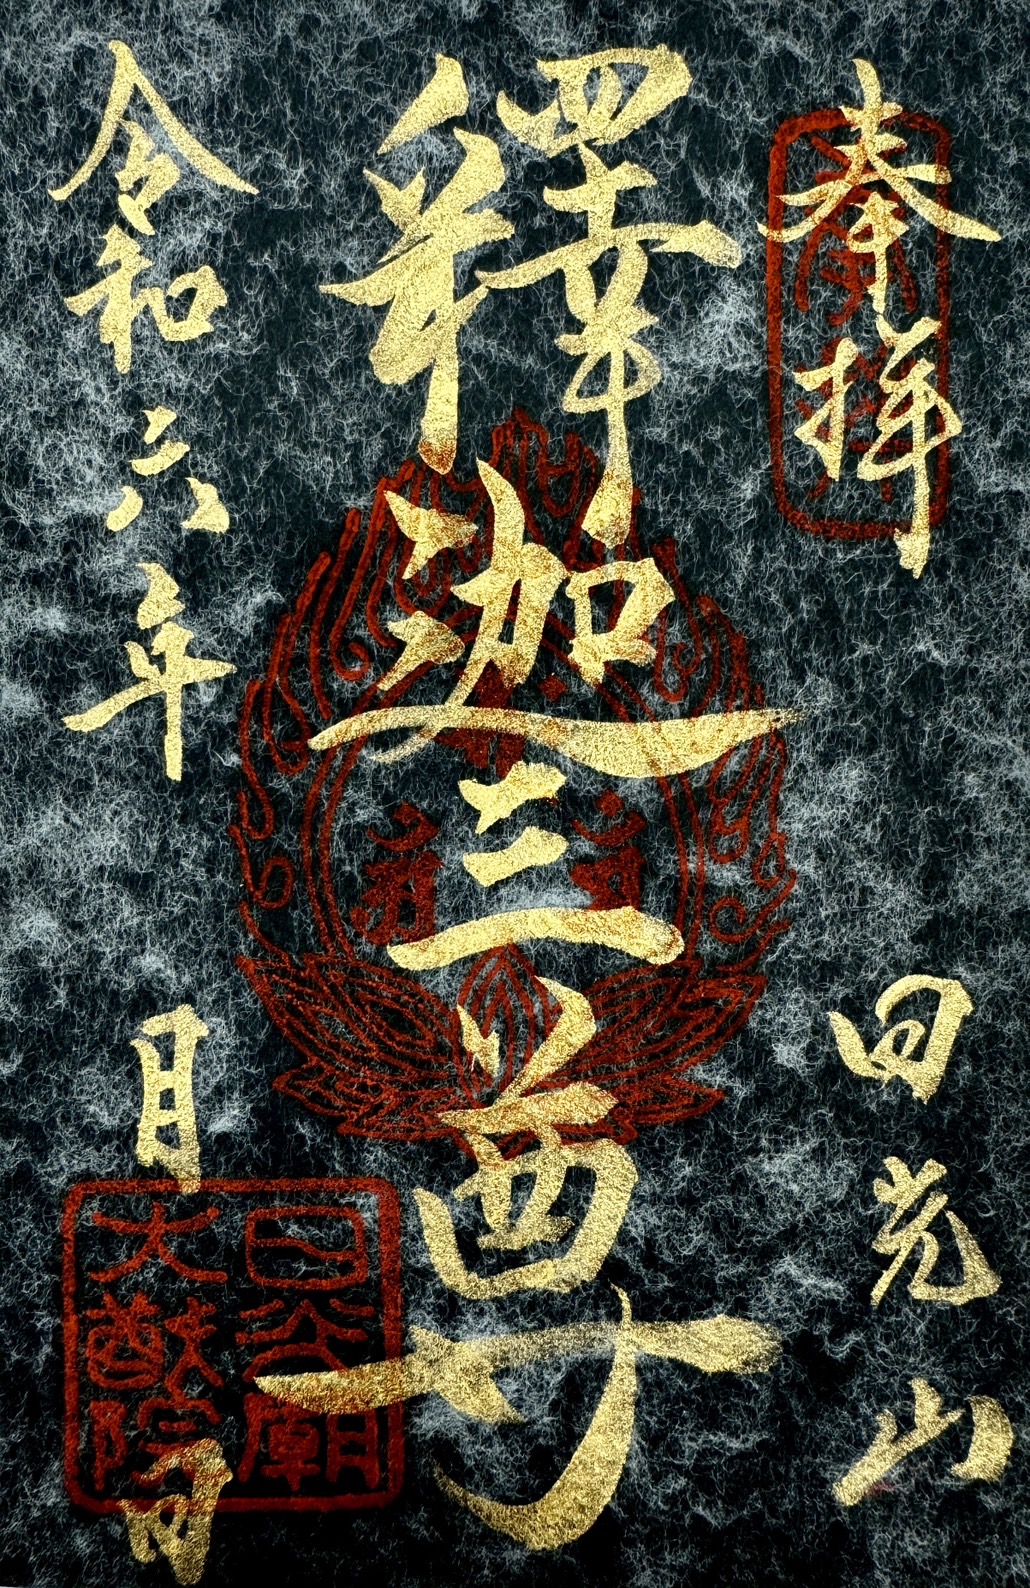 奉拝
日光山
釋迦三尊
令和六年
月
日
日光廟
大猷院